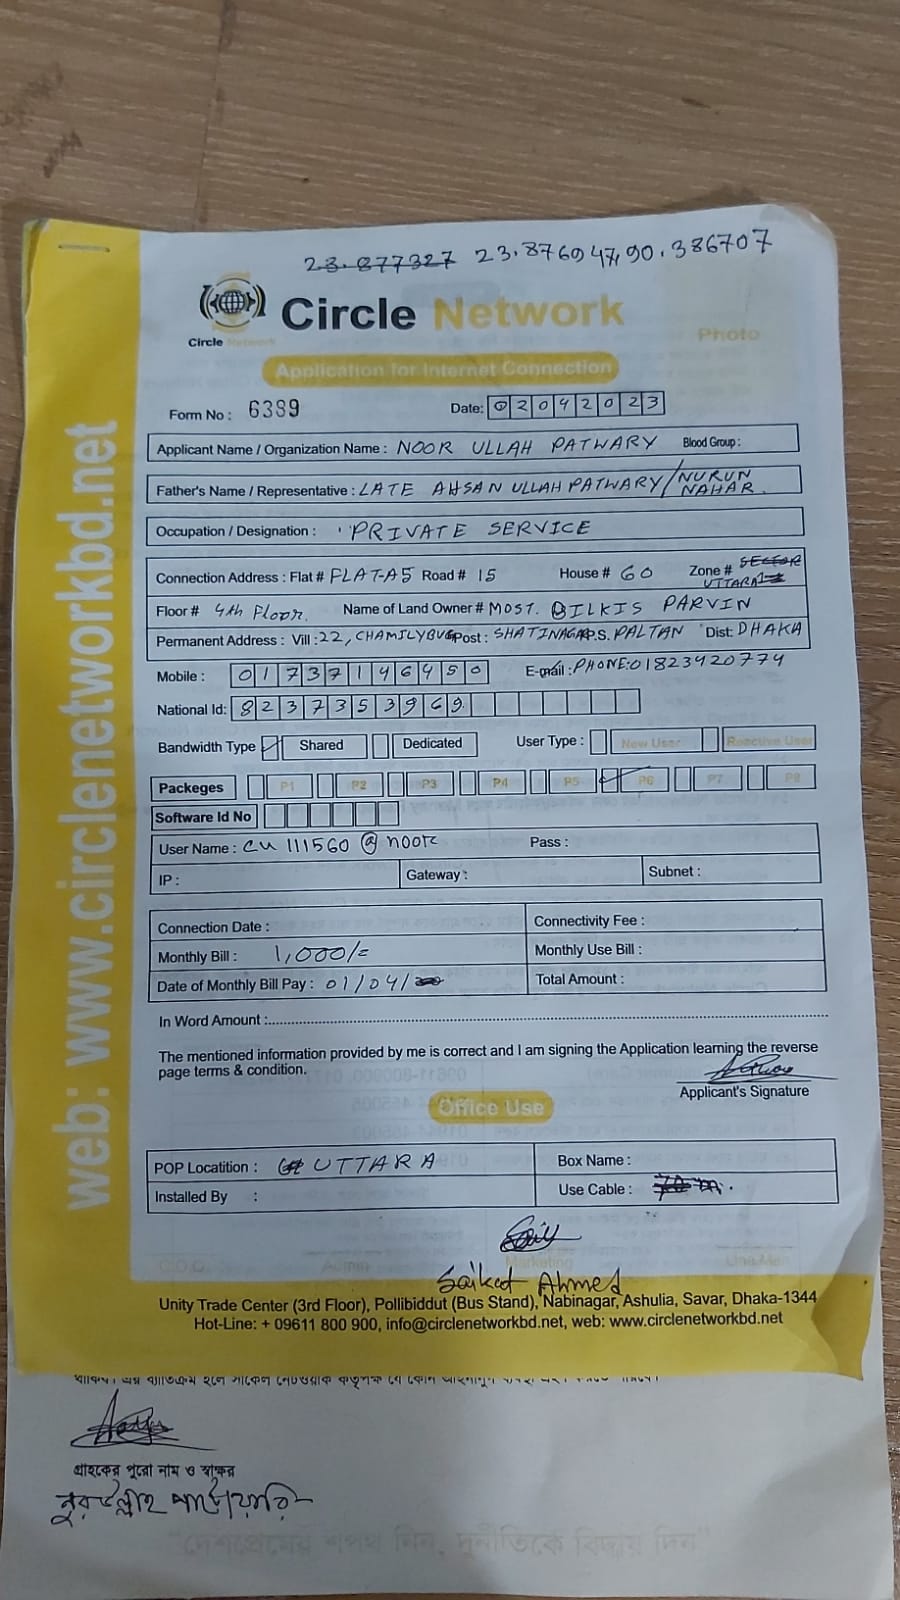 23.877327 23.876947,90.386707
Circle Network
Circle Network
Photo
Application for Internet Connection
Form No : 6389 Date: 02042023
Applicant Name / Organization Name : NOOR ULLAH PATWARY Blood Group :
Father's Name / Representative : LATE AHSAN ULLAH PATWARY/NURUN NAHAR
Occupation / Designation : PRIVATE SERVICE
Connection Address : Flat # FLAT-A5 Road # 15 House # 60 Zone # SECTOR UTTARA
Floor # 4th Floor Name of Land Owner # MOST. BILKIS PARVIN
Permanent Address : Vill : 22, CHAMILYBUG Post : SHATINAGAR P.S. PALTAN Dist: DHAKA
Mobile : 01737146450 E-mail : PHONE:01823420774
National Id: 8237353969
Bandwidth Type Shared Dedicated User Type : New User Reactive User
Packeges P1 P2 P3 P4 P5 P6 P7 P8
Software Id No
User Name : cu 111560 @ noor Pass :
IP : Gateway : Subnet :
Connection Date : Connectivity Fee :
Monthly Bill : 1,000/= Monthly Use Bill :
Date of Monthly Bill Pay : 01/04/ Total Amount :
In Word Amount :
The mentioned information provided by me is correct and I am signing the Application learning the reverse
page terms & condition.
Applicant's Signature
Office Use
POP Locatition : UTTARA Box Name :
Installed By : Use Cable :
C.O.O Admin Marketing Line Man
Saikat Ahmed
Unity Trade Center (3rd Floor), Pollibiddut (Bus Stand), Nabinagar, Ashulia, Savar, Dhaka-1344
Hot-Line: + 09611 800 900, info@circlenetworkbd.net, web: www.circlenetworkbd.net
web: www.circlenetworkbd.net
গ্রাহকের পুরো নাম ও স্বাক্ষর
নুরউল্লাহ পাটোয়ারি
"দেশপ্রেমের শপথ নিন, দুর্নীতিকে বিদায় দিন"